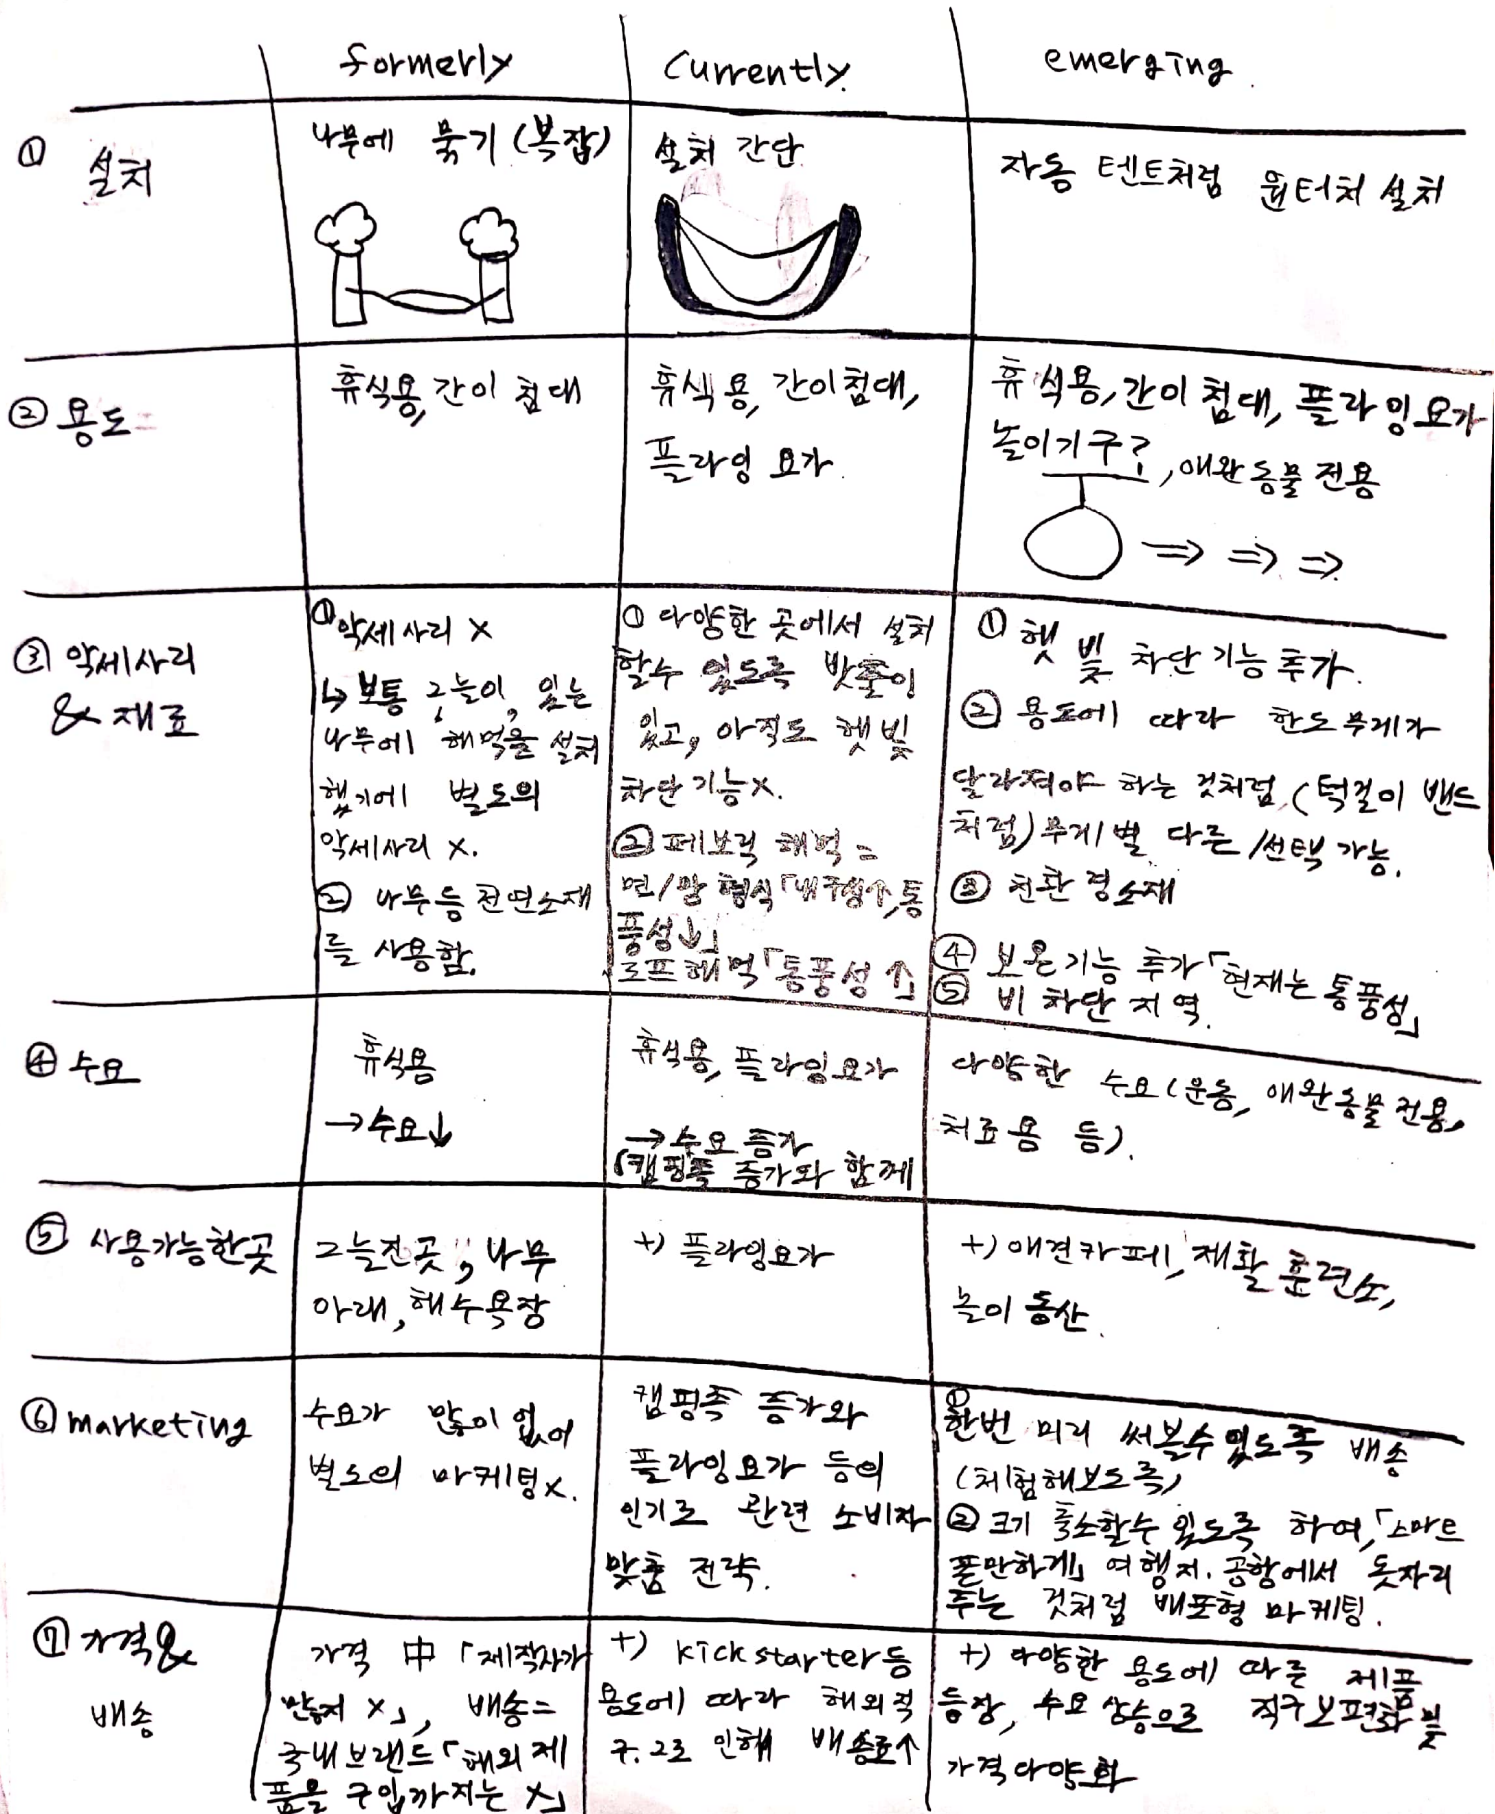 formerly
currently.
emerging.
① 설치
나무에 묶기 (복잡)
설치 간단
자동 텐트처럼 원터치 설치
② 용도
휴식용, 간이 침대
휴식용, 간이침대,
플라잉 요가.
휴식용, 간이 침대, 플라잉요가
놀이기구?, 애완동물 전용
③ 악세사리
& 재료
① 악세사리 X
↳ 보통 그늘이 있는
나무에 해먹을 설치
했기에 별도의
악세사리 X.
② 나무등 천연소재
를 사용함.
① 다양한 곳에서 설치
할수 있도록 밧줄이
있고, 아직도 햇빛
차단 기능X.
② 페브릭 해먹 =
면/망 형식「내구성↑, 통
풍성↓」
로프해먹「통풍성↑」
① 햇빛 차단 기능 추가.
② 용도에 따라 한도무게가
달라져야 하는 것처럼, (턱걸이 밴드
처럼) 무게별 다른/선택 가능.
③ 친환경소재
④ 보온기능 추가「현재는 통풍성」
⑤ 비 차단 지역.
④ 수요
휴식용
→수요↓
휴식용, 플라잉요가
→수요 증가
「캠핑족 증가와 함께
다양한 수요(운동, 애완동물전용,
치료용 등).
⑤ 사용가능한곳
그늘진곳, 나무
아래, 해수욕장
+) 플라잉요가
+) 애견카페, 재활 훈련소,
놀이 동산.
⑥ marketing
수요가 많이 없어
별도의 마케팅X.
캠핑족 증가와
플라잉요가 등의
인기로 관련 소비자
맞춤 전략.
① 한번 미리 써볼수 있도록 배송
(체험해보도록)
② 크기 축소할수 있도록 하여,「스마트
폰만하게」 여행지. 공항에서 돗자리
주는 것처럼 배포형 마케팅.
⑦ 가격&
배송
가격 中 「제작사가
많지 X」, 배송=
국내브랜드「해외제
품을 구입까지는 X」
+) kickstarter 등
용도에 따라 해외직
구. 그로 인해 배송료↑
+) 다양한 용도에 따른 제품
등장, 수요 상승으로 직구보편화 및
가격다양화